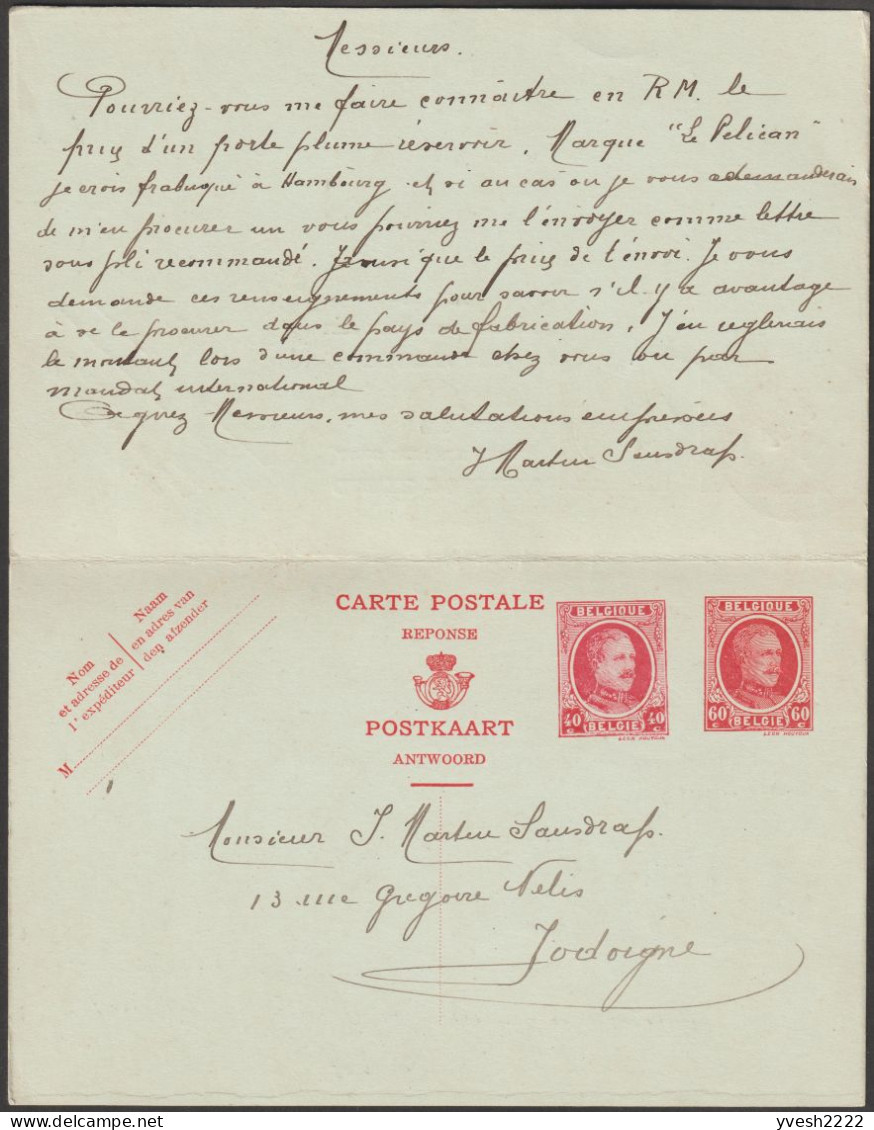 Messieurs.
Pourriez-vous me faire connaître en R.M. le
prix d'un porte plume réservoir. Marque "Le Pelican"
je crois frabuqué à Hambourg et si au cas ou je vous demanderais
de m'en procurer un vous pourriez me l'envoyer comme lettre
sous pli recommandé. que le prix de l'envoi. Je vous
demande ces renseignements pour savoir s'il y a avantage
à se le procurer dans le pays de fabrication. J'en reglerais
le montant lors d'une commande chez vous ou par
mandat international
Messieurs, mes salutations empressées
J Martin Sausdrap.
Nom
et adresse de
l'expéditeur
Naam
en adres van
den afzender
M
CARTE POSTALE
REPONSE
POSTKAART
ANTWOORD
BELGIQUE
40 c 40 c
BELGIE
LEON HOUYOUX
BELGIQUE
60 c 60 c
BELGIE
LEON HOUYOUX
Monsieur J. Martin Sausdrap.
13 rue Gregoire Nelis
Jodoigne
yvesh2222